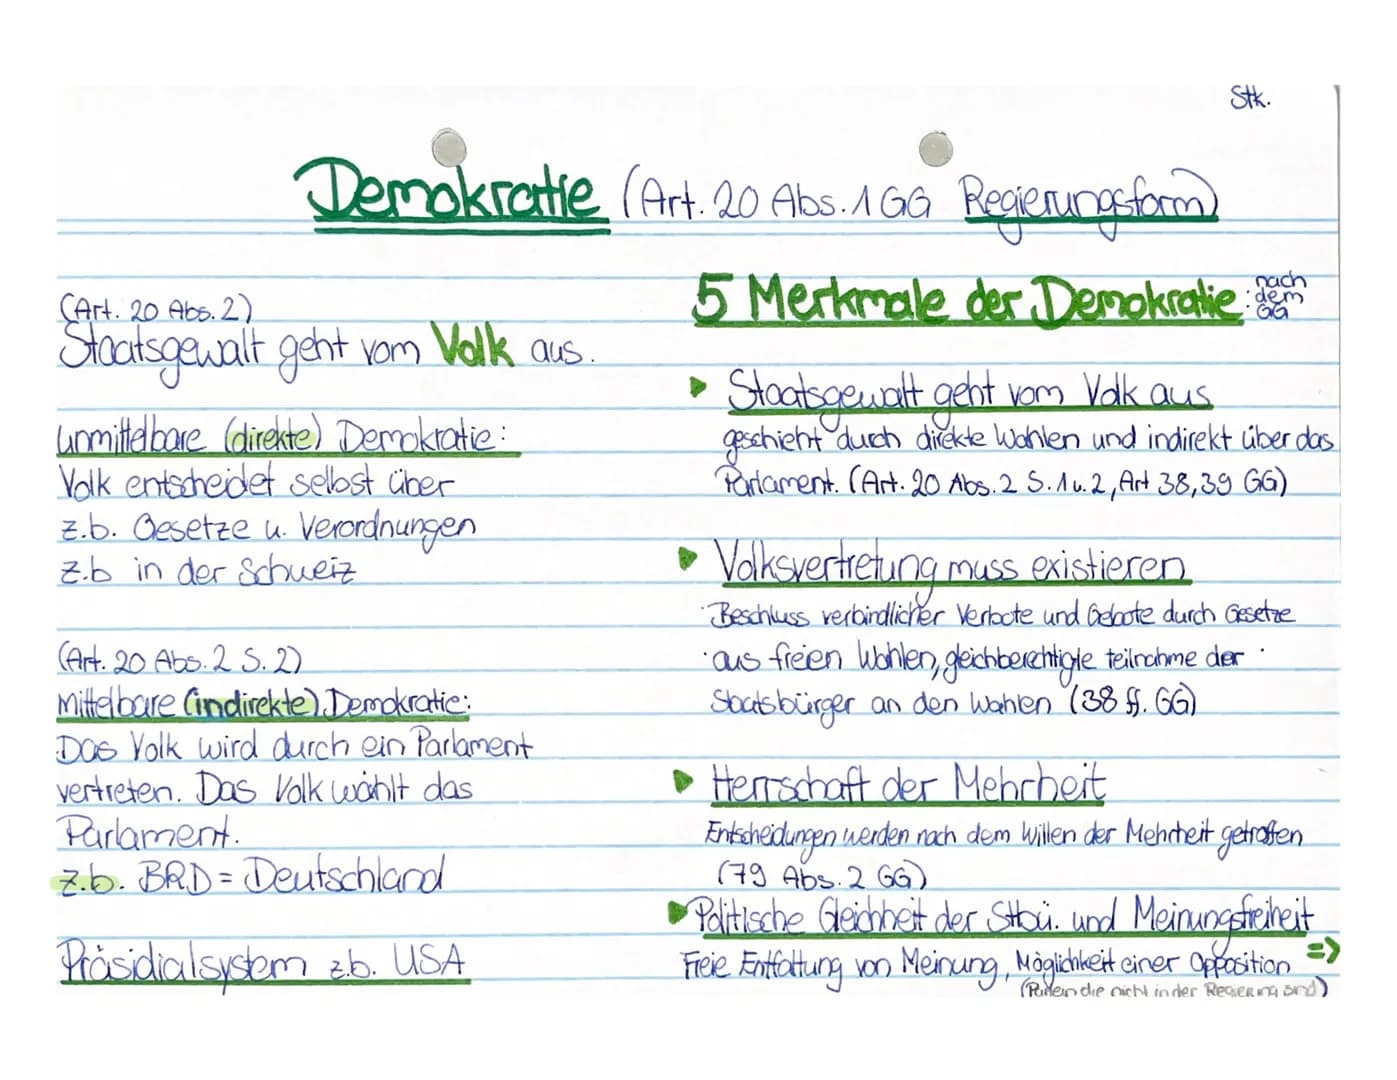 Stk.
Demokratie (Art. 20 Abs. 1 GG Regierungsform)
(Art. 20 Abs. 2)
Staatsgewalt geht vom Volk aus.
unmittelbare (direkte) Demokratie:
Volk entscheidet selbst über
z.b. Gesetze u. Verordnungen
z.b in der Schweiz
(Art. 20 Abs. 2 S. 2)
Mittelbare (indirekte) Demokratie:
Das Volk wird durch ein Parlament
vertreten. Das Volk wählt das
Parlament.
z.b. BRD = Deutschland
Präsidialsystem z.b. USA
5 Merkmale der Demokratie: nach dem GG
Staatsgewalt geht vom Volk aus
geschieht durch direkte Wahlen und indirekt über das
Parlament. (Art. 20 Abs. 2 S. 1 u. 2, Art 38,39 GG)
Volksvertretung muss existieren
· Beschluss verbindlicher Verbote und Gebote durch Gesetze
· aus freien Wahlen, gleichberechtigte teilnahme der
Staatsbürger an den Wahlen (38 ff. GG)
Herrschaft der Mehrheit
Entscheidungen werden nach dem Willen der Mehrheit getroffen
(79 Abs. 2 GG)
Politische Gleichheit der Stbü. und Meinungsfreiheit
Freie Entfaltung von Meinung, Möglichkeit einer Opposition =>
(Parteien die nicht in der Regierung sind)